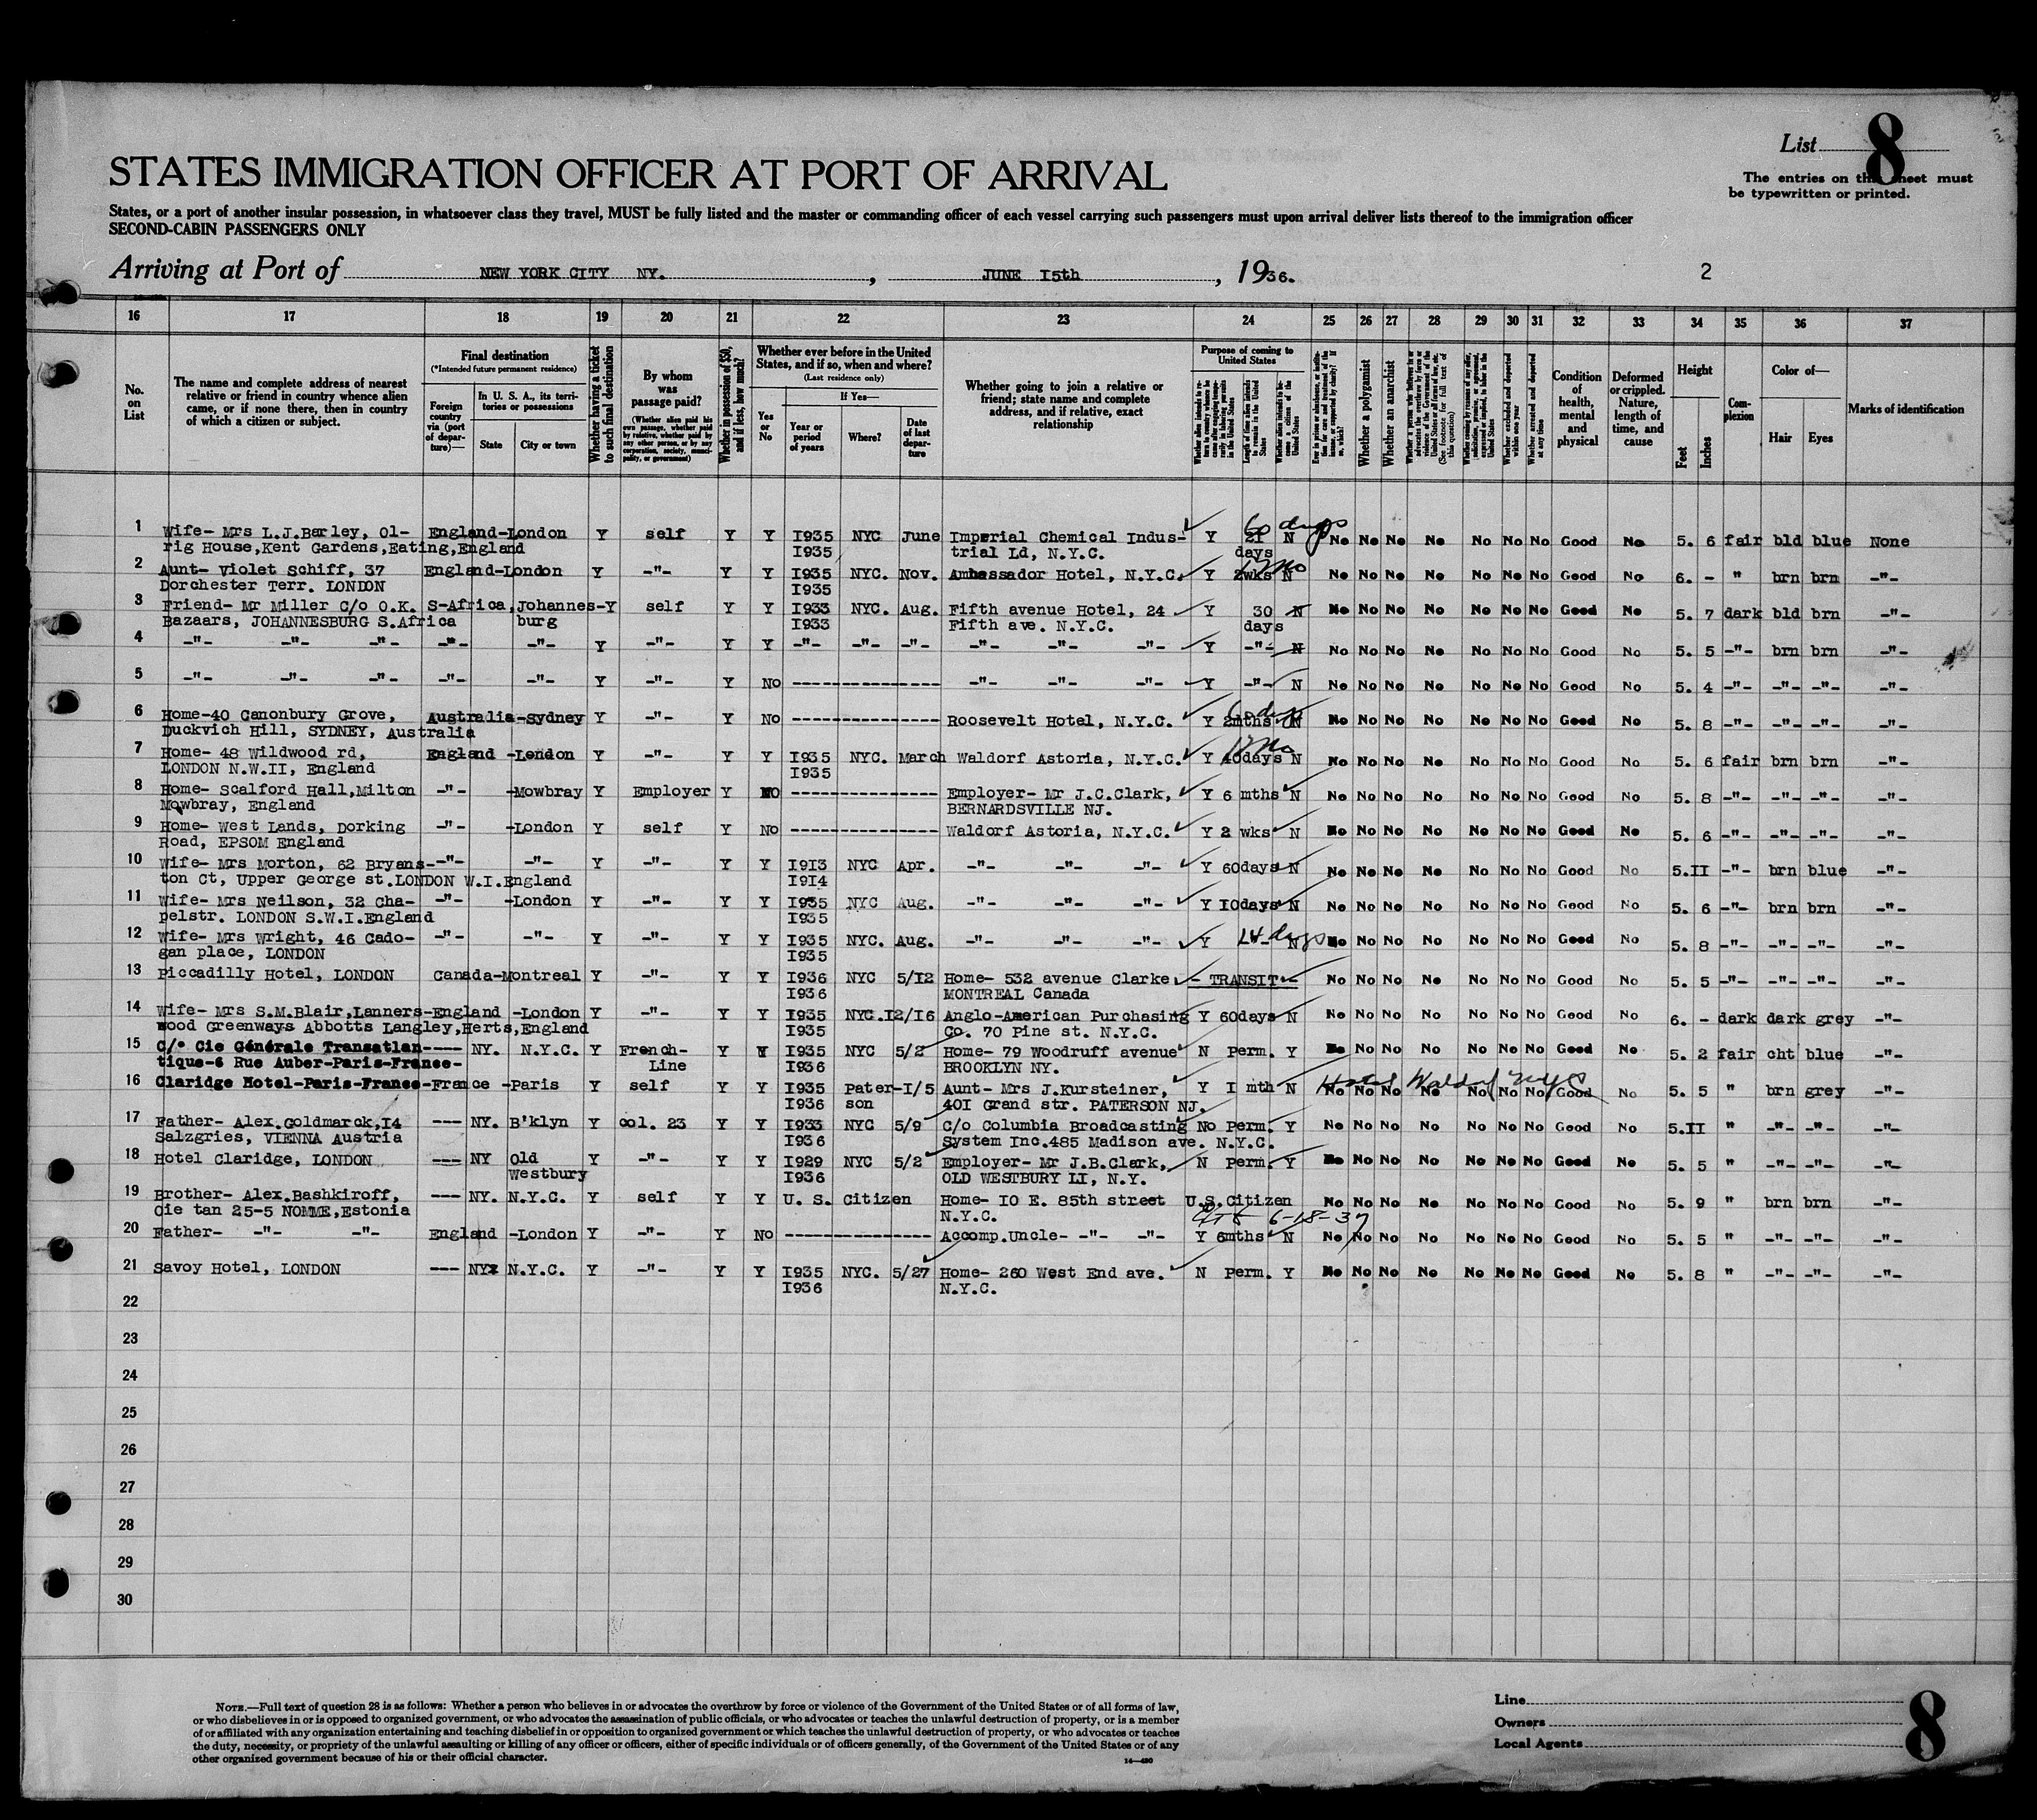 List 8
The entries on this sheet must
be typewritten or printed.
STATES IMMIGRATION OFFICER AT PORT OF ARRIVAL
States, or a port of another insular possession, in whatsoever class they travel, MUST be fully listed and the master or commanding officer of each vessel carrying such passengers must upon arrival deliver lists thereof to the immigration officer
SECOND-CABIN PASSENGERS ONLY
Arriving at Port of NEW YORK CITY NY. , JUNE I5th , 1936. 2
16 17 18 19 20 21 22 23 24 25 26 27 28 29 30 31 32 33 34 35 36 37
No. on List
The name and complete address of nearest relative or friend in country whence alien came, or if none there, then in country of which a citizen or subject.
Final destination
(*Intended future permanent residence)
Foreign country via (port of departure)—
In U. S. A., its territories or possessions
State City or town
Whether having a ticket to such final destination
By whom was passage paid?
(Whether alien paid his own passage, whether paid by relative, whether paid by any other person, or by any corporation, society, municipality, or government)
Whether in possession of $50, and if less, how much?
Whether ever before in the United States, and if so, when and where?
(Last residence only)
Yes or No
If Yes—
Year or period of years Where? Date of last departure
Whether going to join a relative or friend; state name and complete address, and if relative, exact relationship
Purpose of coming to United States
Length of time alien intends to remain in the United States
Whether a polygamist
Whether an anarchist
(See footnote for full text of this question)
Whether excluded and deported within one year
Whether arrested and deported at any time
Condition of health, mental and physical
Deformed or crippled. Nature, length of time, and cause
Height
Feet Inches
Complexion
Color of—
Hair Eyes
Marks of identification
1 Wife- Mrs L.J.Barley, Ol- England-London Y self Y Y I935 NYC June Imperial Chemical Indus- Y 2I N 60 days No No No No No No No Good No 5. 6 fair bld blue None
rig House,Kent Gardens,Eating,England I935 trial Ld, N.Y.C. days
2 Aunt- Violet Schiff, 37 England-London Y -"- Y Y I935 NYC. Nov. Ambassador Hotel, N.Y.C. Y 2wks N No No No No No No No Good No 6. - " brn brn -"-
Dorchester Terr. LONDON I935
3 Friend- Mr Miller C/o O.K. S-Africa,Johannes-Y self Y Y I933 NYC. Aug. Fifth avenue Hotel, 24 Y 30 N No No No No No No No Good No 5. 7 dark bld brn -"-
Bazaars, JOHANNESBURG S.Africa burg I933 Fifth ave. N.Y.C. days
4 -"- -"- -"- -"- -"- Y -"- Y Y -"- -"- -"- -"- -"- -"- Y -"- N No No No No No No No Good No 5. 5 -"- brn brn -"-
5 -"- -"- -"- -"- -"- Y -"- Y No --------------- -"- -"- -"- Y -"- N No No No No No No No Good No 5. 4 -"- -"- -"- -"-
6 Home-40 Canonbury Grove, Australia-Sydney Y -"- Y No --------------- Roosevelt Hotel, N.Y.C. Y 2mths N No No No No No No No Good No 5. 8 -"- -"- -"- -"-
Duckvich Hill, SYDNEY, Australia
7 Home- 48 Wildwood rd, England -London Y -"- Y Y I935 NYC. March Waldorf Astoria, N.Y.C. Y 40days N No No No No No No No Good No 5. 6 fair brn brn -"-
LONDON N.W.II, England I935
8 Home- Scalford Hall,Milton -"- -Mowbray Y Employer Y NO --------------- Employer- Mr J.C.Clark, Y 6 mths N No No No No No No No Good No 5. 8 -"- -"- -"- -"-
Mowbray, England BERNARDSVILLE NJ.
9 Home- West Lands, Dorking -"- -London Y self Y No --------------- Waldorf Astoria, N.Y.C. Y 2 wks N No No No No No No No Good No 5. 6 -"- -"- -"- -"-
Road, EPSOM England
10 Wife- Mrs Morton, 62 Bryans- -"- -"- Y -"- Y Y I9I3 NYC Apr. -"- -"- -"- Y 60days N No No No No No No No Good No 5.II -"- brn blue -"-
ton Ct, Upper George st.LONDON W.I.England I9I4
11 Wife- Mrs Neilson, 32 Cha- -"- -London Y -"- Y Y I935 NYC Aug. -"- -"- -"- Y I0days N No No No No No No No Good No 5. 6 -"- brn brn -"-
pelstr. LONDON S.W.I.England I935
12 Wife- Mrs Wright, 46 Cado- -"- -"- Y -"- Y Y I935 NYC. Aug. -"- -"- -"- Y 14 days N No No No No No No No Good No 5. 8 -"- -"- -"- -"-
gan place, LONDON I935
13 Piccadilly Hotel, LONDON Canada-Montreal Y -"- Y Y I936 NYC 5/I2 Home- 532 avenue Clarke - TRANSIT - No No No No No No No Good No 5. 5 -"- -"- -"- -"-
I936 MONTREAL Canada
14 Wife- Mrs S.M.Blair,Lanners-England -London Y -"- Y Y I935 NYC.I2/I6 Anglo-American Purchasing Y 60days N No No No No No No No Good No 6. - dark dark grey -"-
wood Greenways Abbotts Langley,Herts,England I935 Co. 70 Pine st. N.Y.C.
15 C/o Cie Générale Transatlan---- NY. N.Y.C. Y French- Y Y I935 NYC 5/2 Home- 79 Woodruff avenue N Perm. Y No No No No No No No Good No 5. 2 fair cht blue -"-
tique-6 Rue Auber-Paris-France- Line I936 BROOKLYN NY.
16 Claridge Hotel-Paris-France-France -Paris Y self Y Y I935 Pater-I/5 Aunt- Mrs J.Kursteiner, Y I mth N Hotel Waldorf NYC No No No No No No No Good No 5. 5 " brn grey -"-
I936 son 40I Grand str. PATERSON NJ.
17 Father- Alex.Goldmarck,I4 --- NY. B'klyn Y col. 23 Y Y I933 NYC 5/9 C/o Columbia Broadcasting No Perm. Y No No No No No No No Good No 5.II " -"- -"- -"-
Salzgries, VIENNA Austria I936 System Inc.485 Madison ave. N.Y.C.
18 Hotel Claridge, LONDON --- NY Old Y -"- Y Y I929 NYC 5/2 Employer- Mr J.B.Clark, N Perm. Y No No No No No No No Good No 5. 5 " -"- -"- -"-
Westbury I936 OLD WESTBURY LI, N.Y.
19 Brother- Alex.Bashkiroff, --- NY. N.Y.C. Y self Y Y U. S. Citizen Home- I0 E. 85th street U.S.Citizen No No No No No No No Good No 5. 9 " brn brn -"-
Cie tan 25-5 NOMME,Estonia N.Y.C. 6-18-37
20 Father- -"- -"- England -London Y -"- Y No --------------- Accomp.Uncle- -"- -"- Y 6mths N No No No No No No No Good No 5. 5 " -"- -"- -"-
21 Savoy Hotel, LONDON --- NY N.Y.C. Y -"- Y Y I935 NYC. 5/27 Home- 260 West End ave. N Perm. Y No No No No No No No Good No 5. 8 " -"- -"- -"-
I936 N.Y.C.
22
23
24
25
26
27
28
29
30
NOTE.—Full text of question 28 is as follows: Whether a person who believes in or advocates the overthrow by force or violence of the Government of the United States or of all forms of law,
or who disbelieves in or is opposed to organized government, or who advocates the assassination of public officials, or who advocates or teaches the unlawful destruction of property, or is a member
of or affiliated with any organization entertaining and teaching disbelief in or opposition to organized government or which teaches the unlawful destruction of property, or who advocates or teaches
the duty, necessity, or propriety of the unlawful assaulting or killing of any officer or officers, either of specific individuals or of officers generally, of the Government of the United States or of any
other organized government because of his or their official character.
14—490
Line
Owners
Local Agents
8